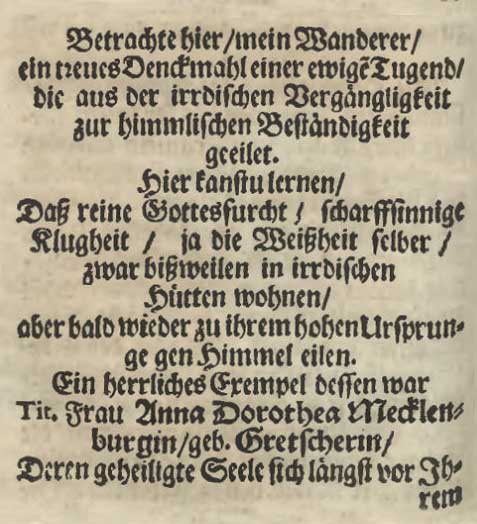 Betrachte hier/mein Wanderer/
ein treues Denckmahl einer ewigẽ Tugend/
die aus der irrdischen Vergängligkeit
zur himmlischen Beständigkeit
geeilet.
Hier kanstu lernen/
Daß reine Gottesfurcht / scharffsinnige
Klugheit / ja die Weißheit selber /
zwar bißweilen in irrdischen
Hütten wohnen/
aber bald wieder zu ihrem hohen Ursprun-
ge gen Himmel eilen.
Ein herrliches Exempel dessen war
Tit. Frau Anna Dorothea Mecklen-
burgin/geb. Gretscherin/
Deren geheiligte Seele sich längst vor Ih-
rem